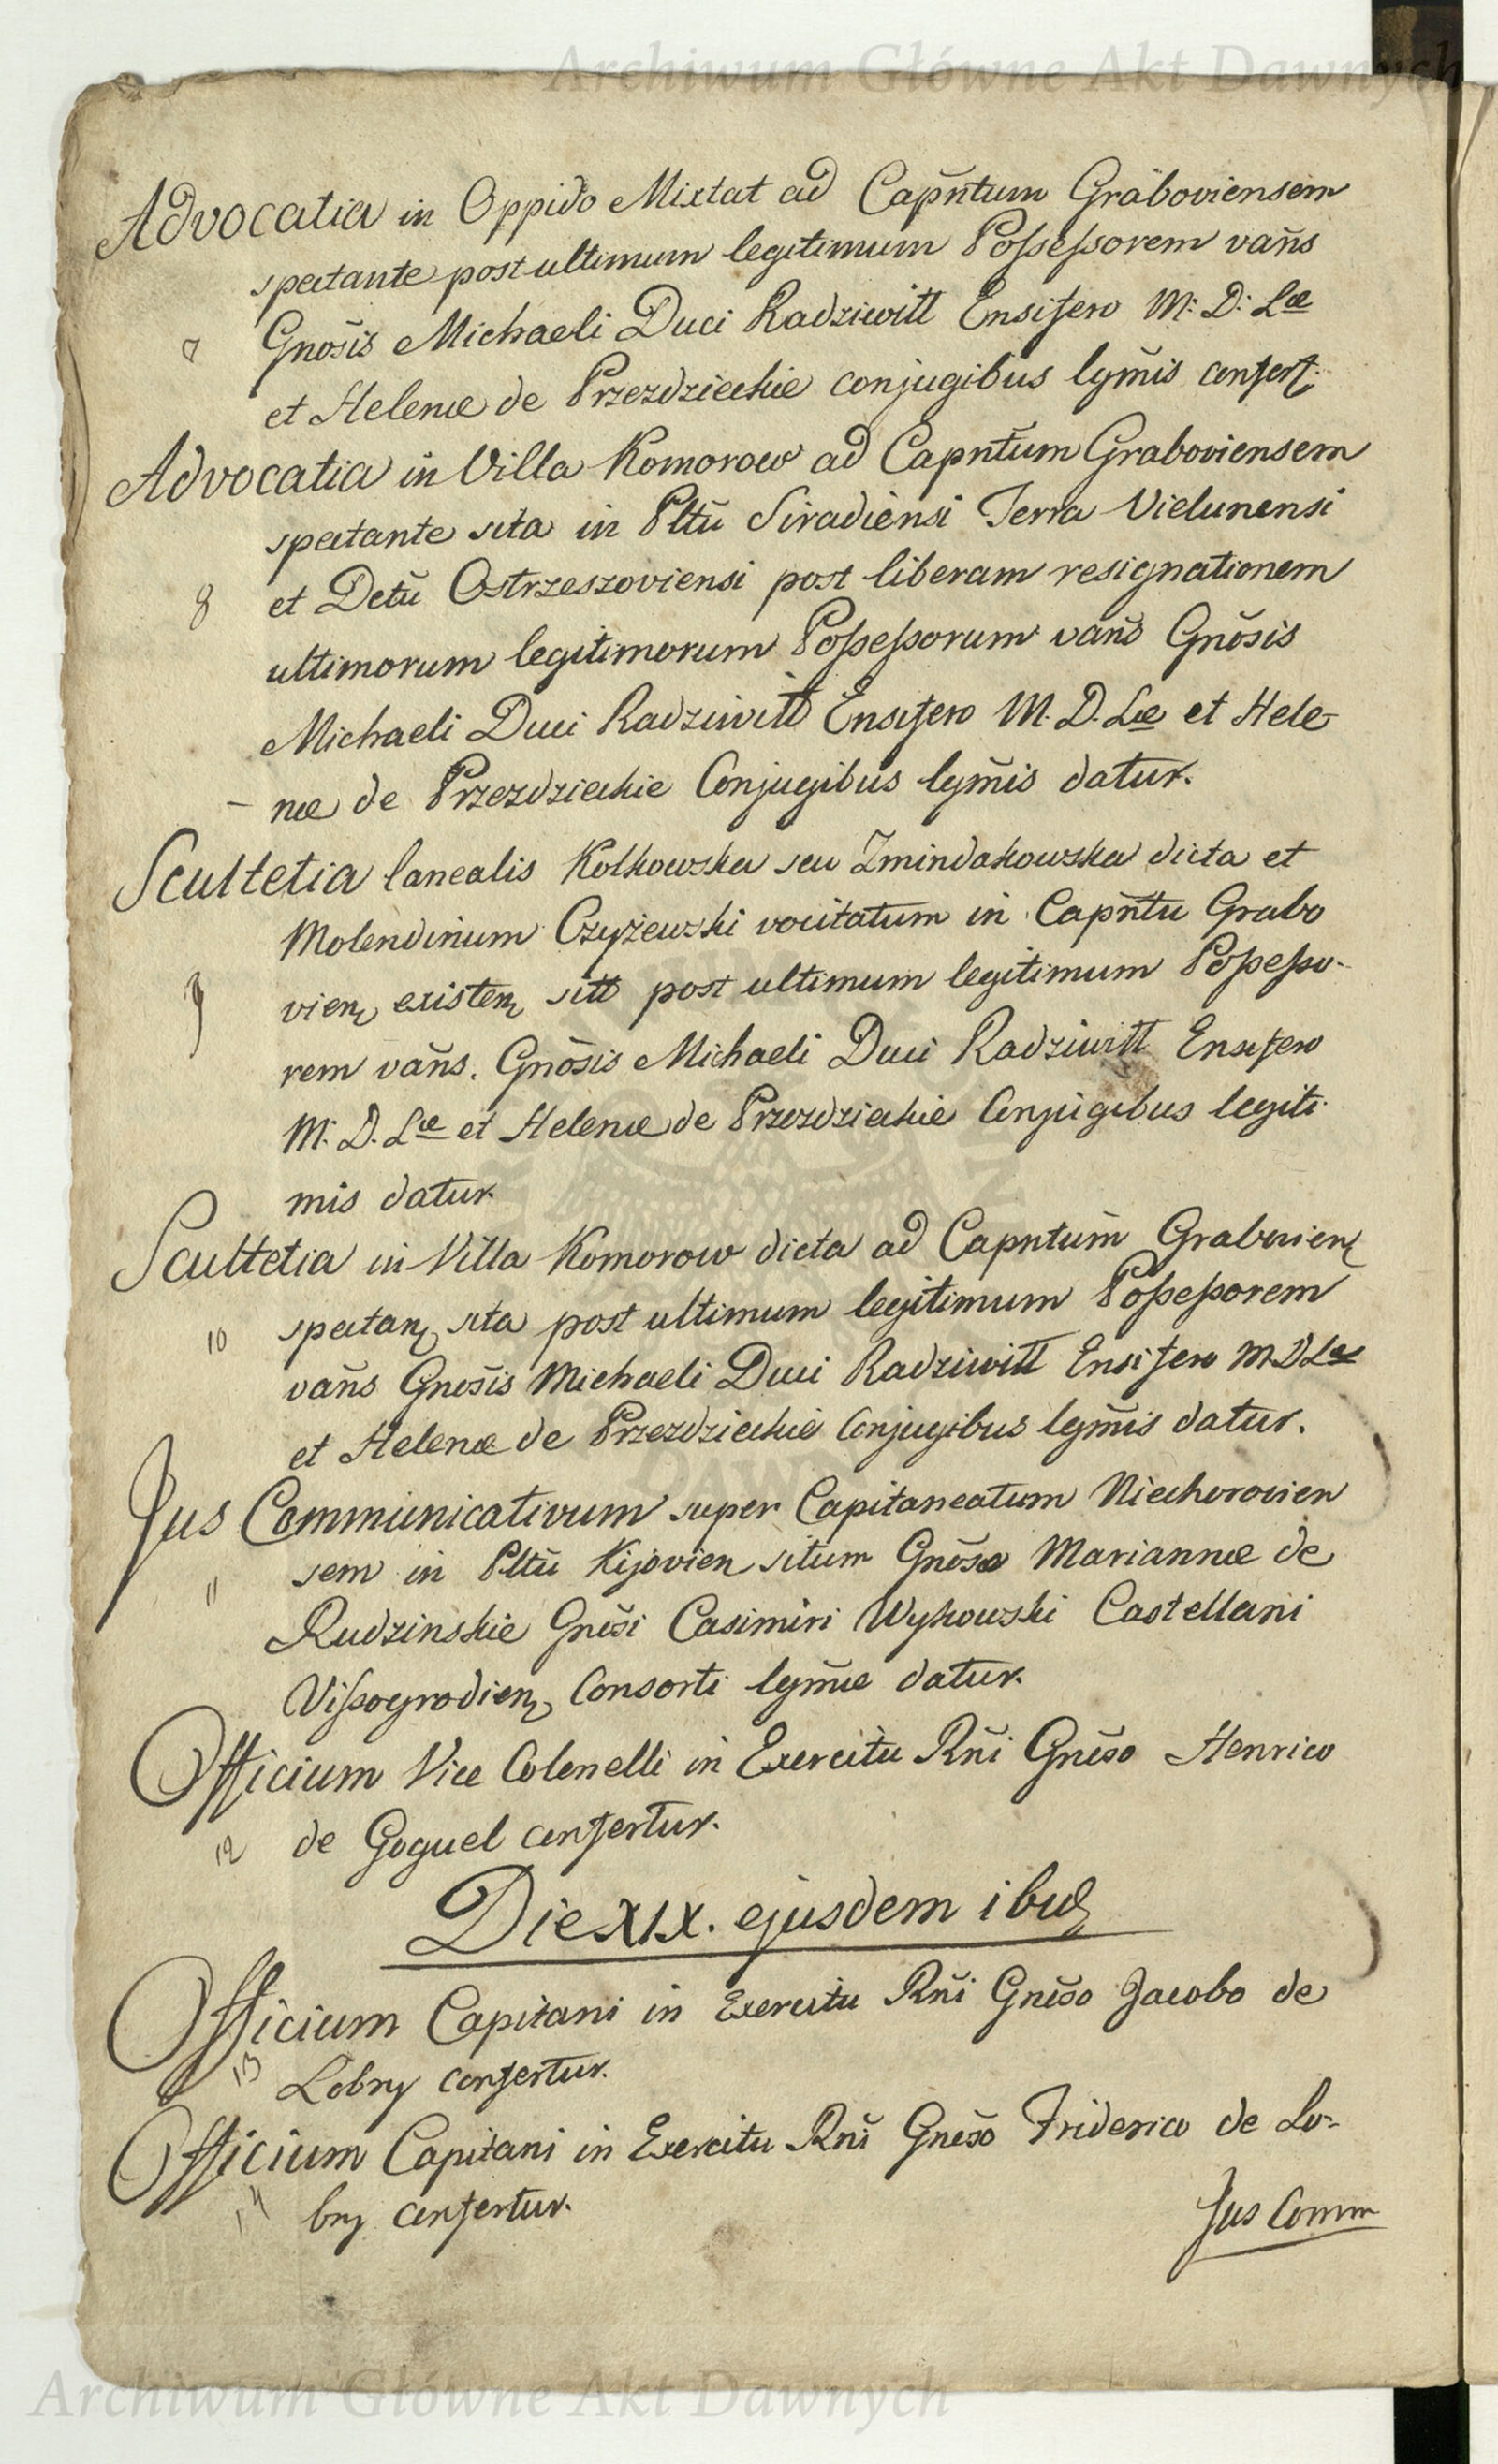 Archiwum Główne Akt Dawnych
Advocatia in Oppido Mixtat ad Capñtum Graboviensem
spectante post ultimum legitimum Possessorem vañs
7 Gnõsis Michaeli Duci Radziwiłł Ensifero M: D: Læ
et Helenæ de Przezdzieckie conjugibus lgm̃is confert:
Advocatia in Villa Komorow ad Capñtum Graboviensem
spectante sita in Pltũ Siradiensi Terra Vielunensi
8 et Dctũ Ostrzeszoviensi post liberam resignationem
ultimorum legitimorum Possessorum vañs Gnõsis
Michaeli Duci Radziwiłł Ensifero M. D. Læ et Hele-
- næ de Przezdzieckie Conjugibus lgm̃is datur.
Scultetia lanealis Kolkowska seu Zmindakowska dicta et
Molendinum Czyżewski vocitatum in Capñtu Grabo
9 vien, existen, sitt post ultimum legitimum Possesso-
rem vañs. Gnõsis Michaeli Duci Radziwiłł Ensifero
M. D. Læ et Helenæ de Przezdzieckie Conjugibus legiti-
mis datur.
Scultetia in Villa Komorow dicta ad Capntum̃ Grabovien,
10 spectan, sita post ultimum legitimum Possessorem
vañs Gnosis̃ Michaeli Duci Radziwiłł Ensifero M D Læ
et Helenæ de Przezdzieckie Conjugibus lgm̃is datur.
Jus Communicativum super Capitaneatum Niechorovien
11 sem in Pltũ Kijovien situm Gnõsæ Mariannæ de
Rudzinskie Gnõsi Casimiri Wykowski Castellani
Vissogrodien, Consorti lgm̃æ datur.
Officium Vice Colonelli in Exercitu Rñi Gnõso Henrico
12 de Goguel confertur.
Die XIX. ejusdem ibid,
Officium Capitani in Exercitu Rñi Gnõso Jacobo de
13 Lobry confertur.
Officium Capitani in Exercitu Rñi Gnõso Friderico de Lo-
14 bry confertur.
Jus Comm
Archiwum Główne Akt Dawnych